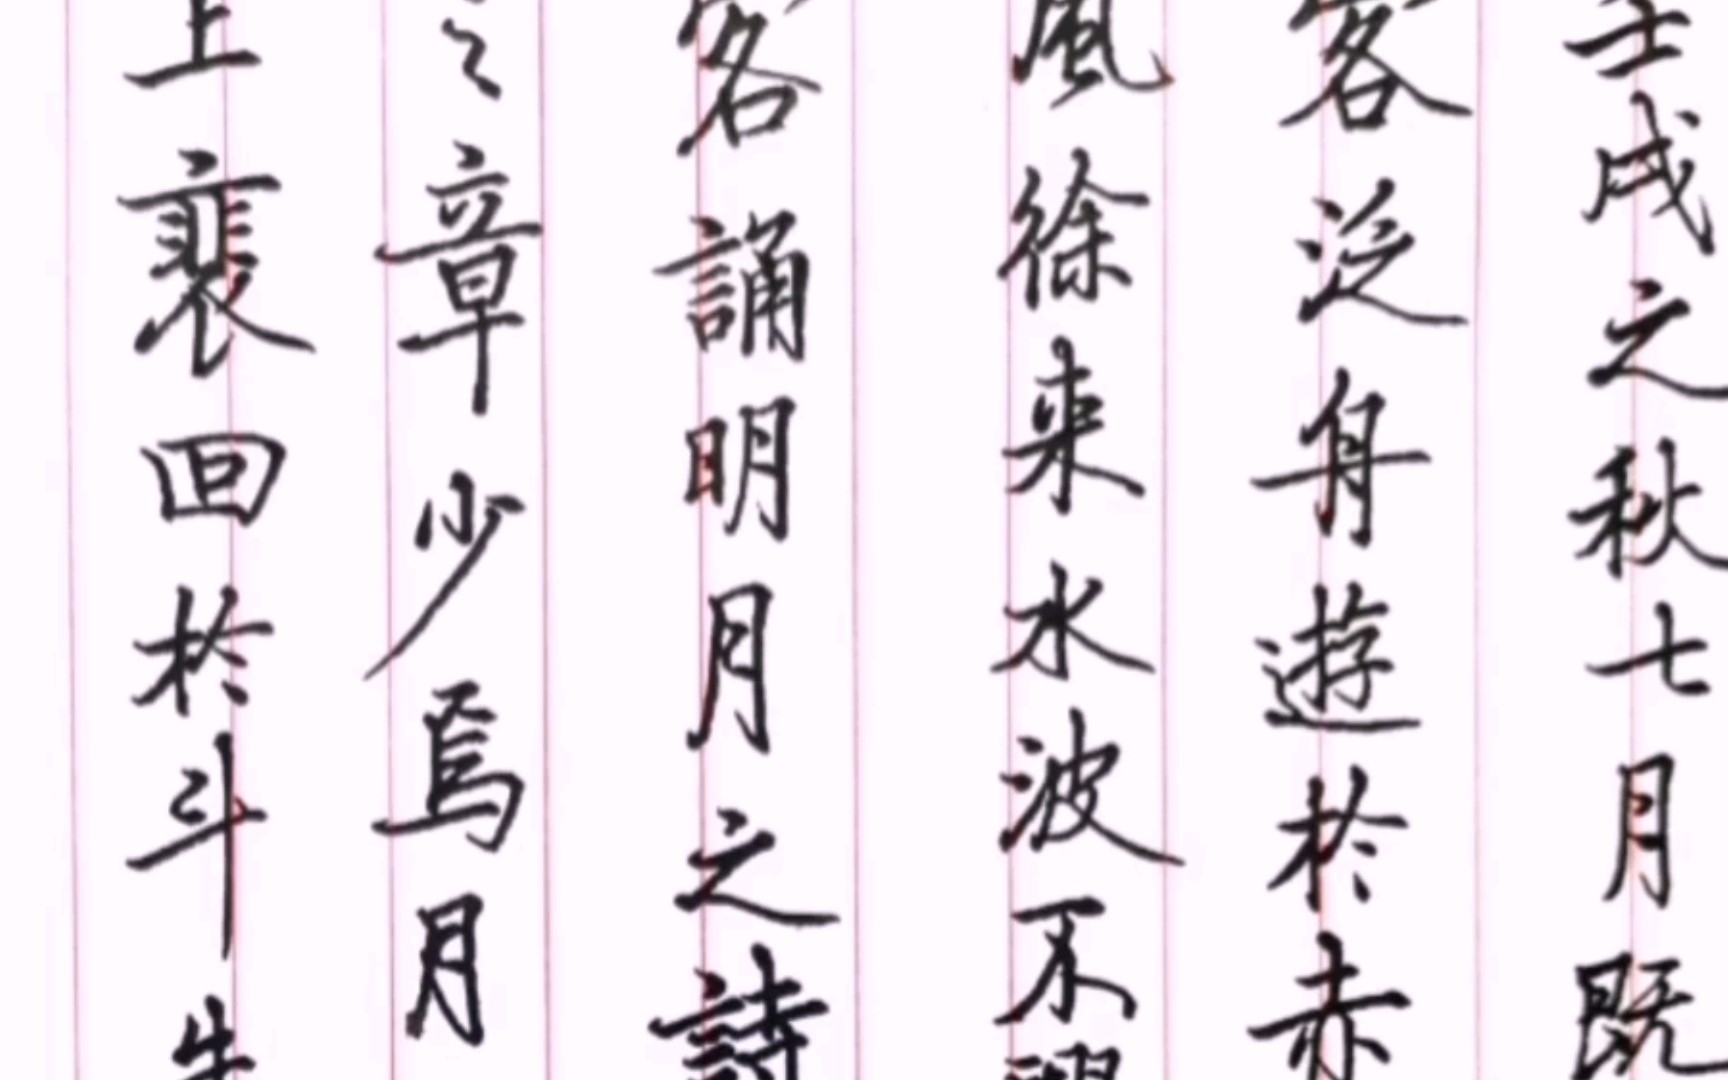 壬戌之秋七月既
客泛舟遊於赤
風徐来水波不興
客誦明月之詩
之章少焉月
上裴回於斗牛